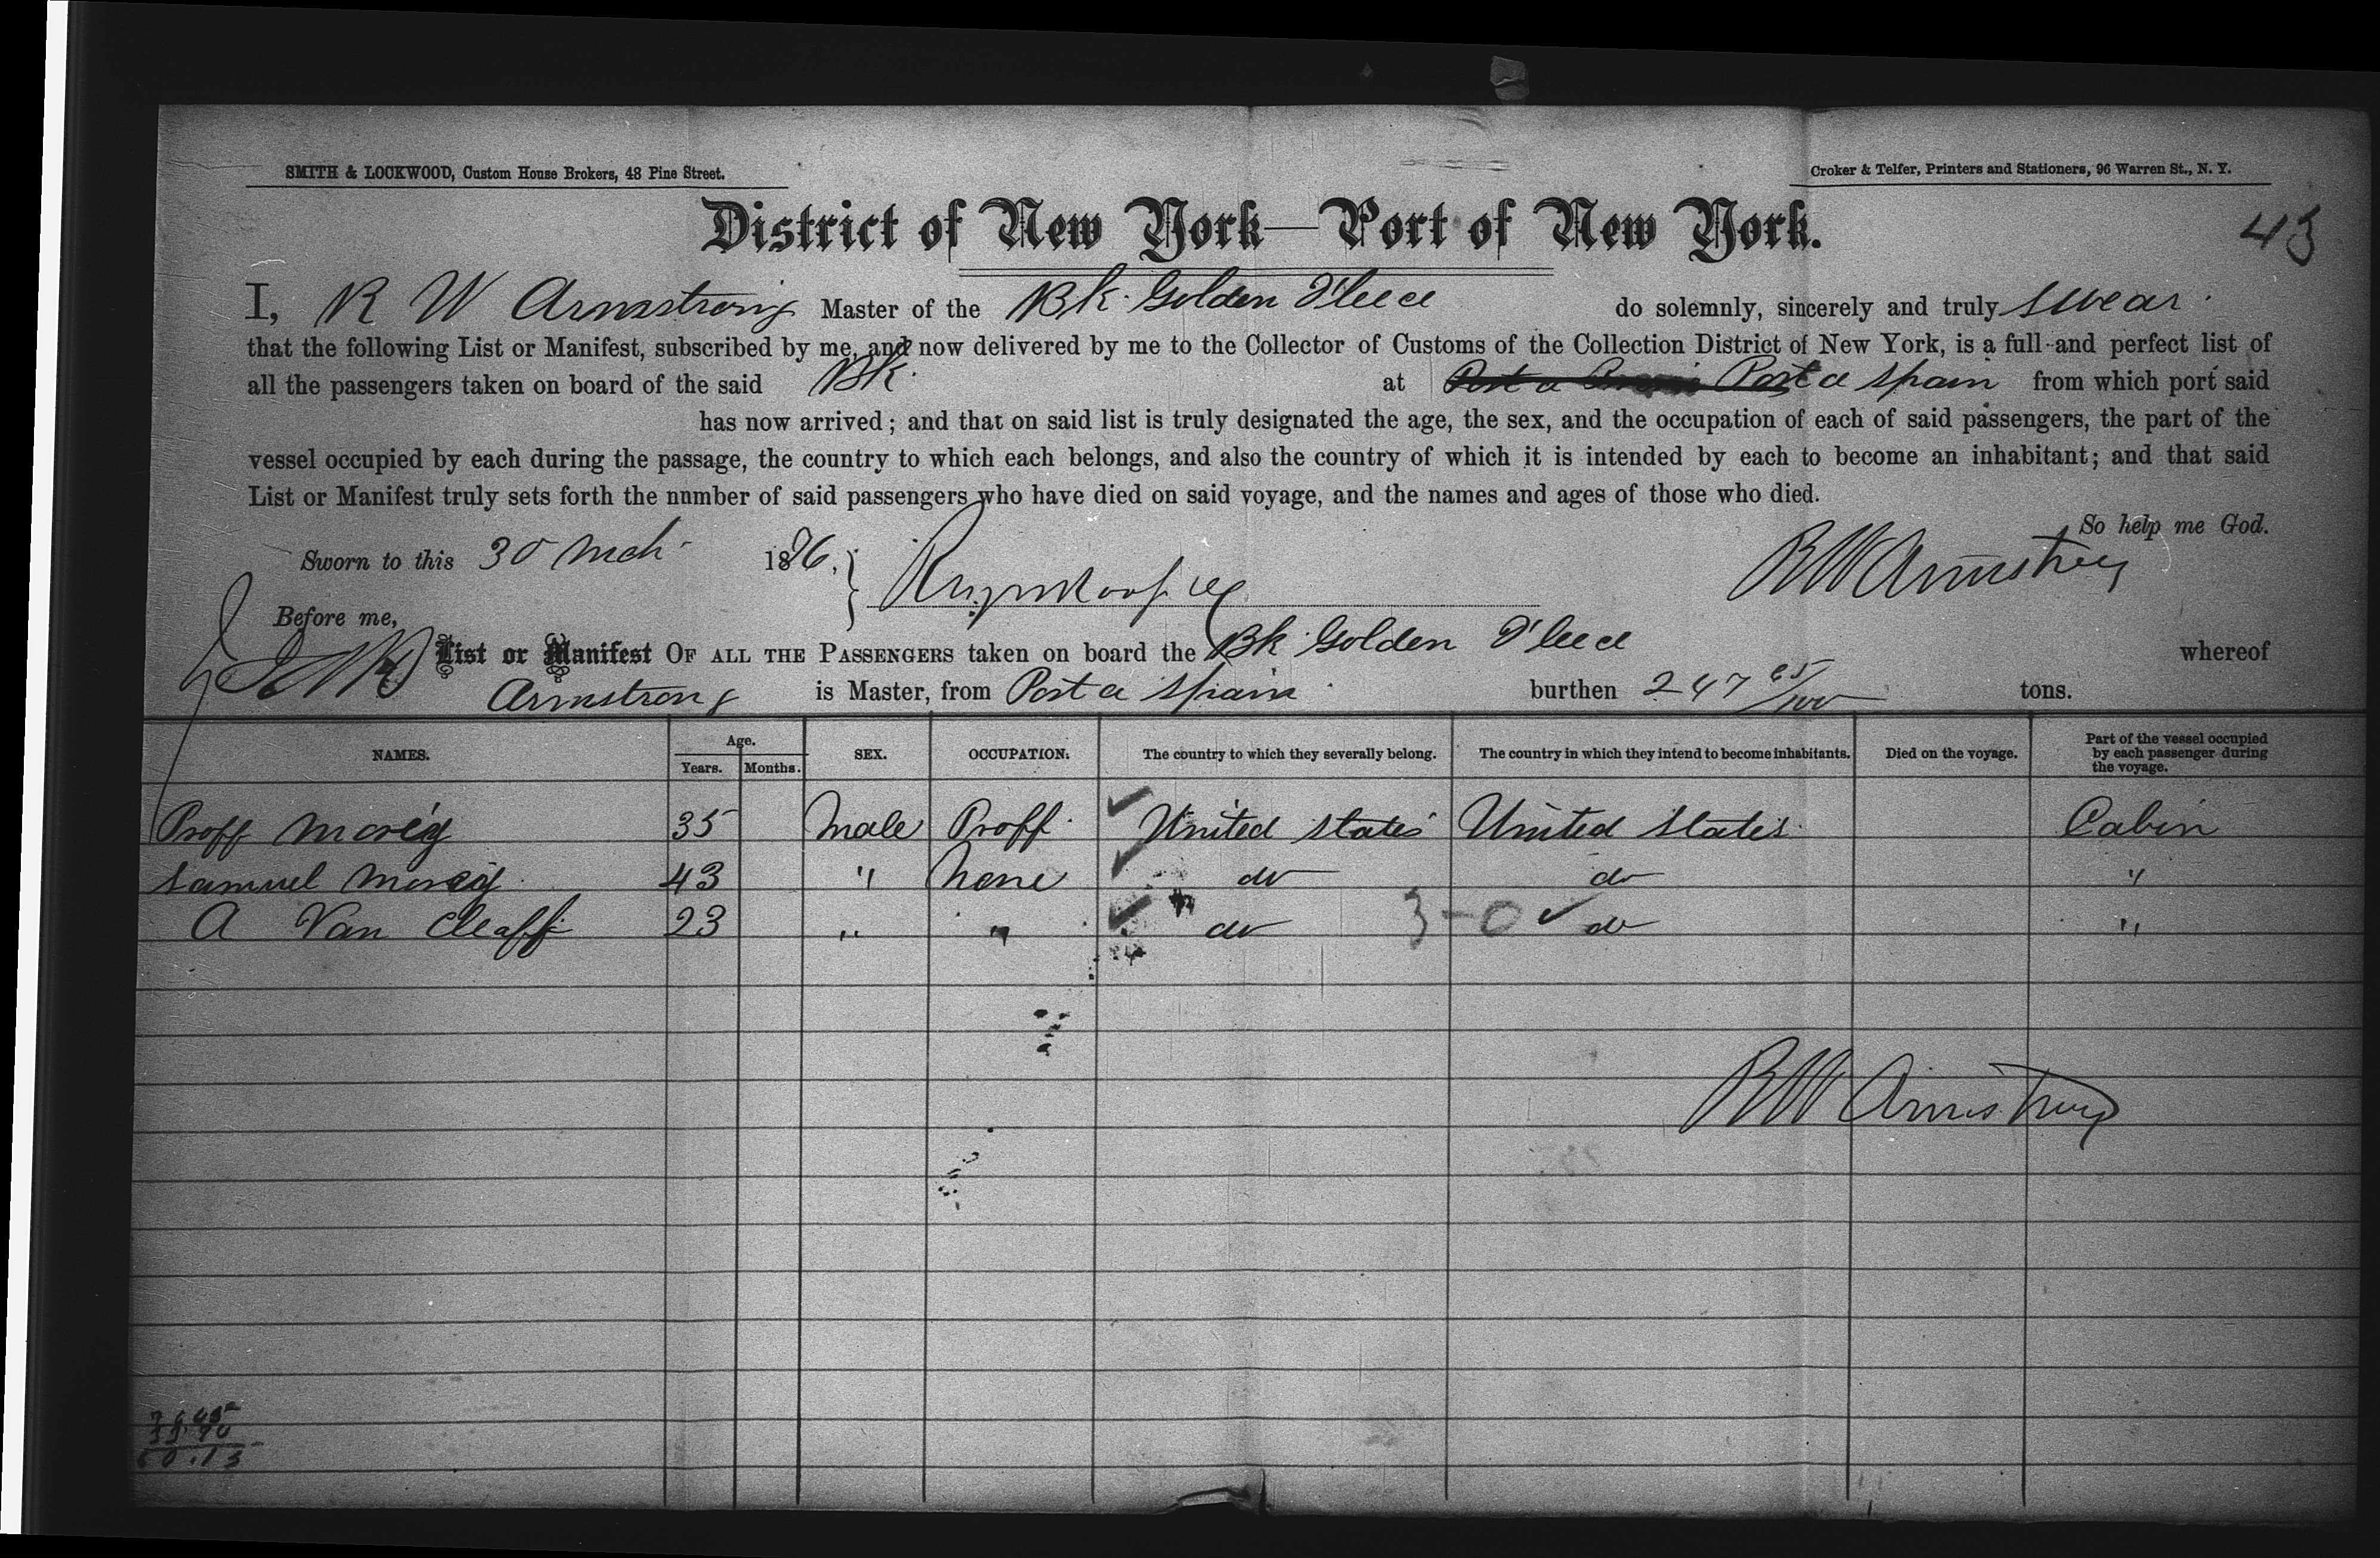 SMITH & LOCKWOOD, Custom House Brokers, 48 Pine Street.
Croker & Telfer, Printers and Stationers, 96 Warren St., N. Y.
District of New York—Port of New York.
43
I, R W Armstrong Master of the Bk. Golden Fleece do solemnly, sincerely and truly swear
that the following List or Manifest, subscribed by me, and now delivered by me to the Collector of Customs of the Collection District of New York, is a full and perfect list of
all the passengers taken on board of the said Bk. at Port a Spain from which port said
has now arrived; and that on said list is truly designated the age, the sex, and the occupation of each of said passengers, the part of the
vessel occupied by each during the passage, the country to which each belongs, and also the country of which it is intended by each to become an inhabitant; and that said
List or Manifest truly sets forth the nnmber of said passengers who have died on said voyage, and the names and ages of those who died.
So help me God.
Sworn to this 30 Mch 1886.
RW Armstrong
Before me,
List or Manifest OF ALL THE PASSENGERS taken on board the Bk Golden Fleece whereof
Armstrong is Master, from Port a Spain burthen 247 65/100 tons.
NAMES. Age. Years. Months. SEX. OCCUPATION. The country to which they severally belong. The country in which they intend to become inhabitants. Died on the voyage. Part of the vessel occupied by each passenger during the voyage.
Proff 35 Male Proff. United States United States Cabin
Samuel 43 " None do do "
A Van Cleaff 23 " " do 3-0 do "
RW Armstrong